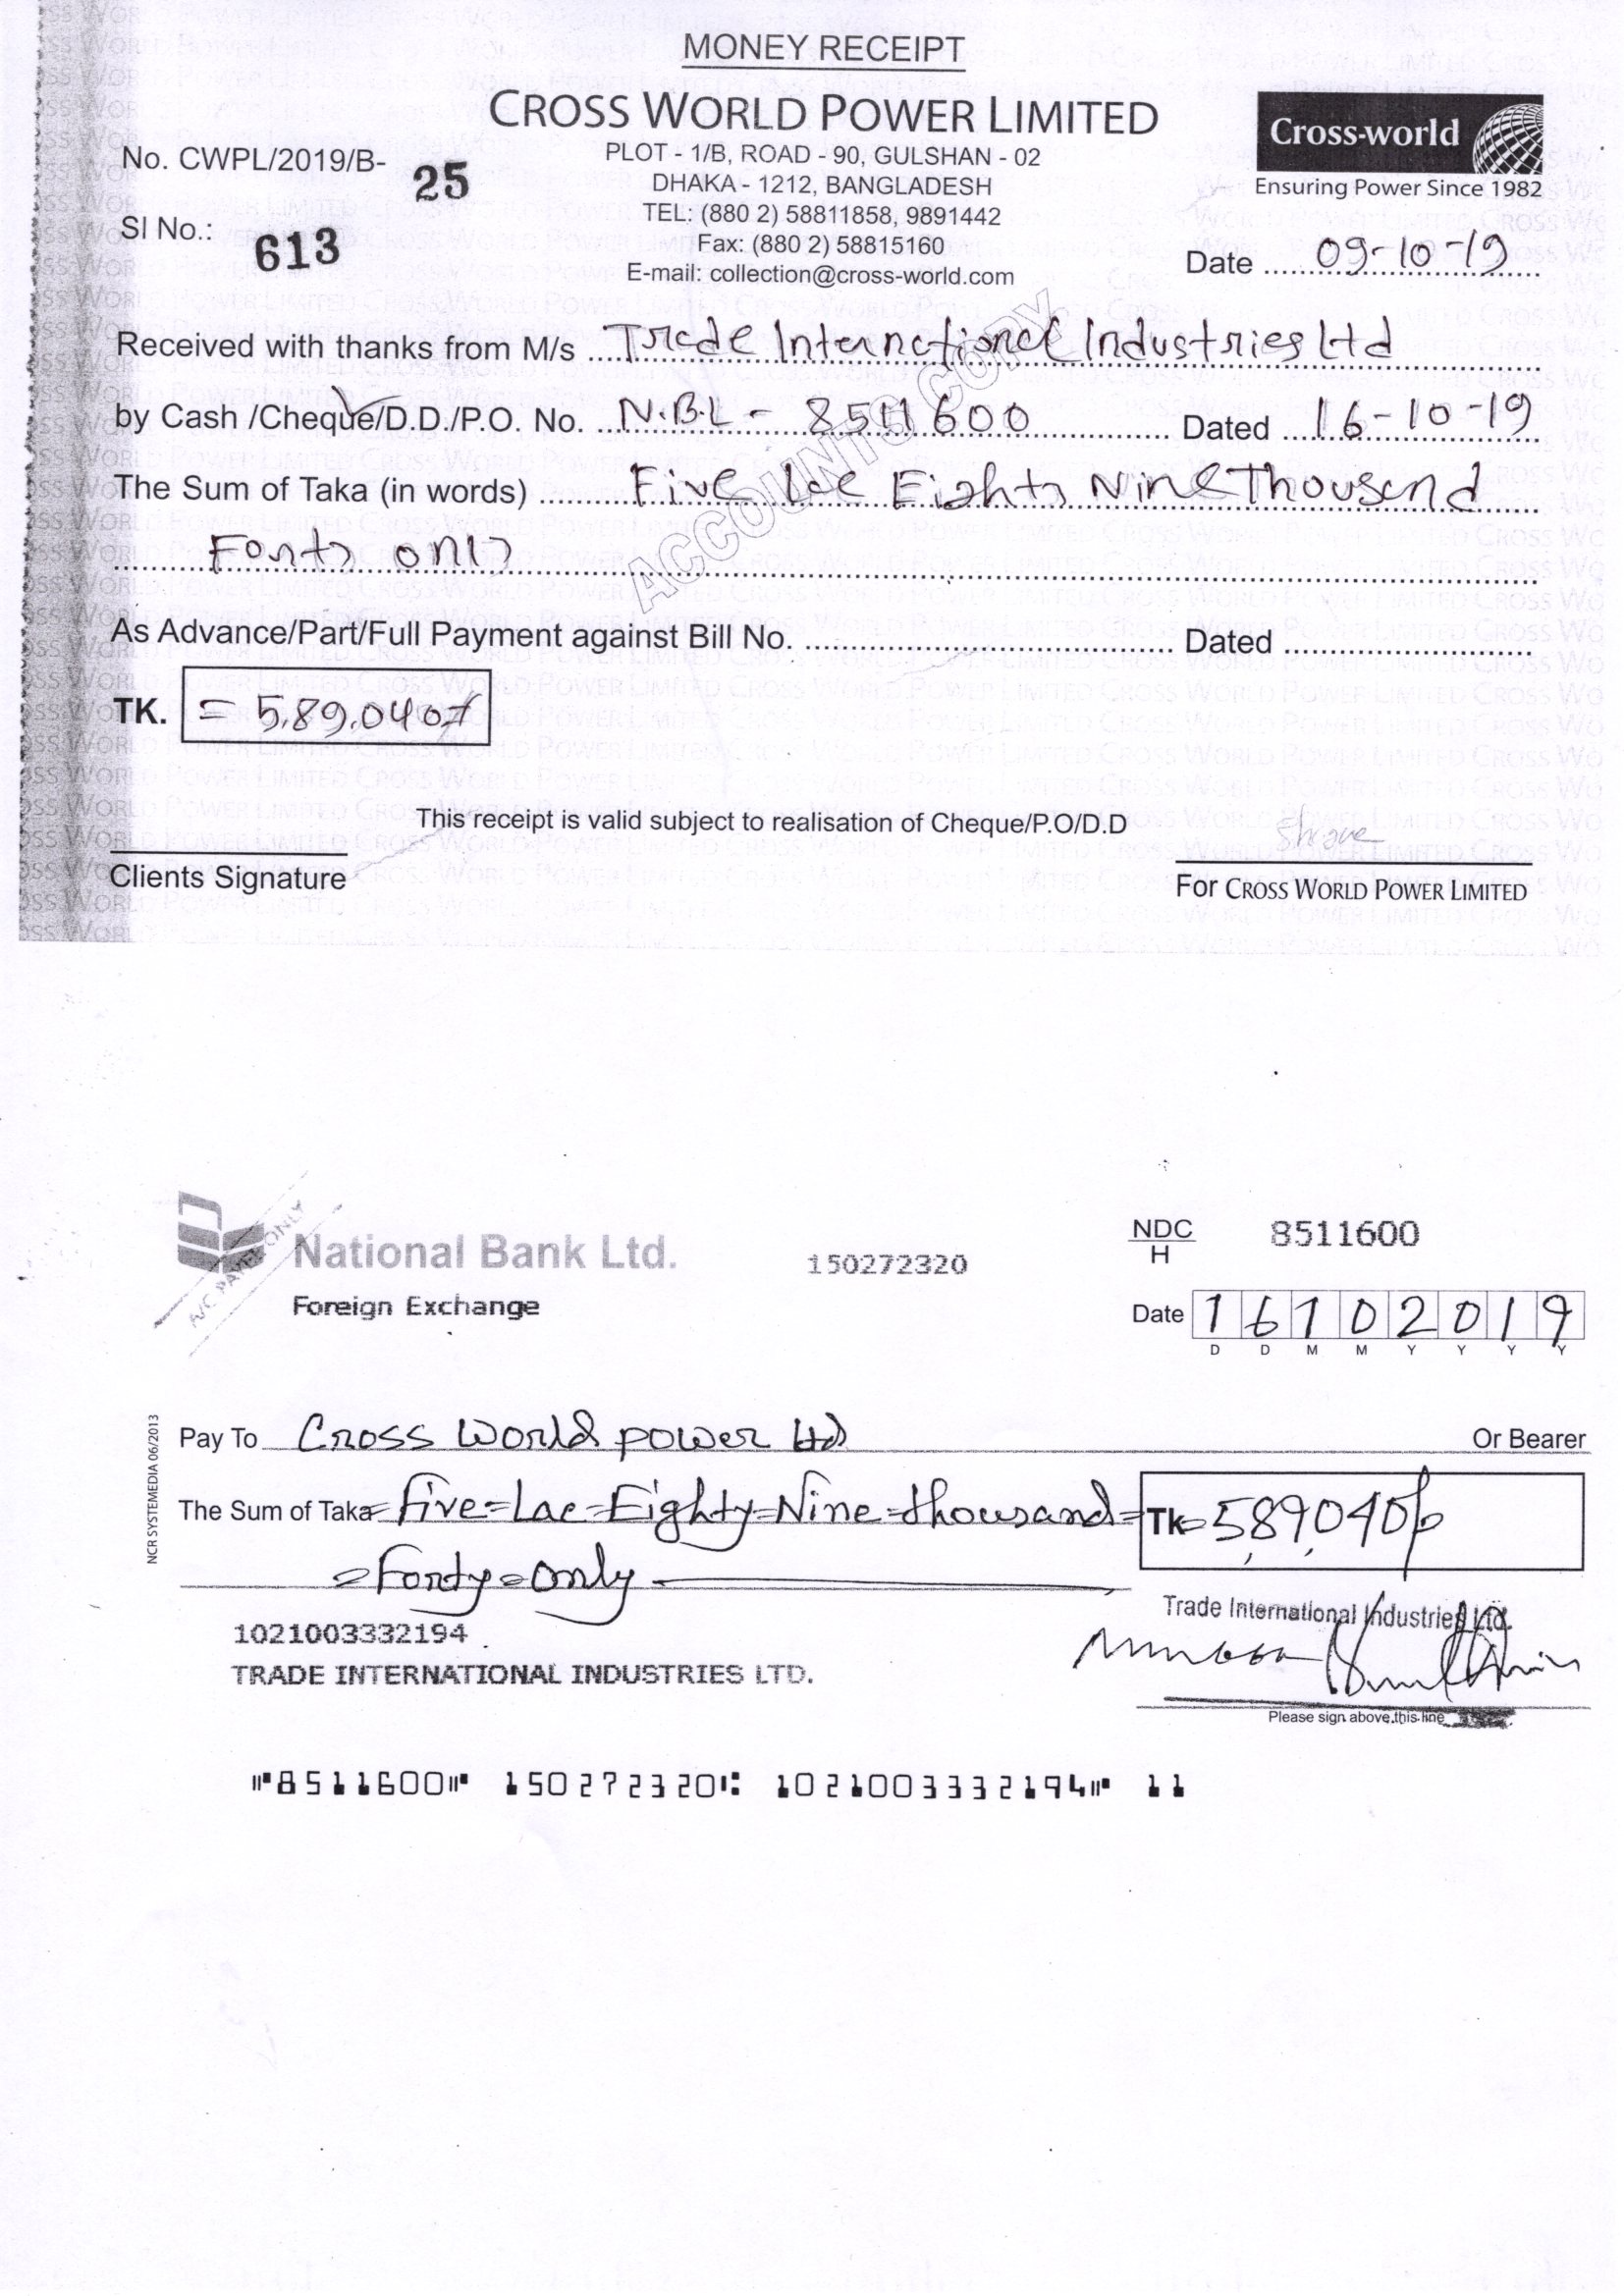 MONEY RECEIPT
CROSS WORLD POWER LIMITED
PLOT - 1/B, ROAD - 90, GULSHAN - 02
DHAKA - 1212, BANGLADESH
TEL: (880 2) 58811858, 9891442
Fax: (880 2) 58815160
E-mail: collection@cross-world.com
Cross-world
Ensuring Power Since 1982
No. CWPL/2019/B- 25
Sl No.: 613
Date 09-10-19
Received with thanks from M/s Trade International Industries Ltd
by Cash /Cheque/D.D./P.O. No. N.B.L - 8511600 Dated 16-10-19
The Sum of Taka (in words) Five Lac Eighty Nine Thousand
Forty only
ACCOUNTS COPY
As Advance/Part/Full Payment against Bill No. Dated
TK. = 5,89,040/=
This receipt is valid subject to realisation of Cheque/P.O/D.D
Clients Signature
For CROSS WORLD POWER LIMITED
A/C PAYEE ONLY
National Bank Ltd.
Foreign Exchange
150272320
NDC
H
8511600
Date 16102019
D D M M Y Y Y Y
NCR SYSTEMEDIA 06/2013
Pay To Cross World power Ltd Or Bearer
The Sum of Taka = Five = Lac = Eighty = Nine = thousand = Tk = 5,89,040/-
= Forty = only
Trade International Industries Ltd.
1021003332194
TRADE INTERNATIONAL INDUSTRIES LTD.
Please sign above this line
8511600 150272320 1021003332194 11